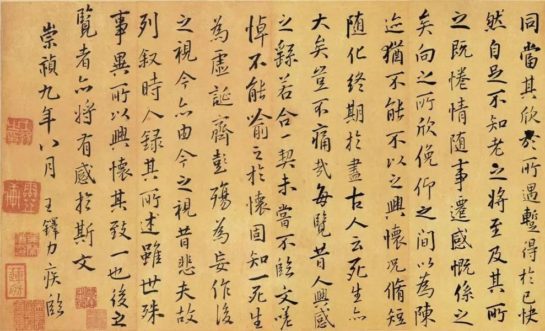 同當其欣於所遇暫得於己快
然自足不知老之將至及其所
之既惓情随事遷感慨係之
矣向之所欣俛仰之間以為陳
迹猶不能不以之興懷況脩短
随化終期於盡古人云死生亦
大矣豈不痛哉每覽昔人興感
之繇若合一契未嘗不臨文嗟
悼不能喻之於懷固知一死生
為虛誕齊彭殤為妄作後
之視今亦由今之視昔悲夫故
列叙時人録其所述雖世殊
事異所以興懷其致一也後之
覽者亦將有感於斯文
崇禎九年八月 王鐸力疾臨